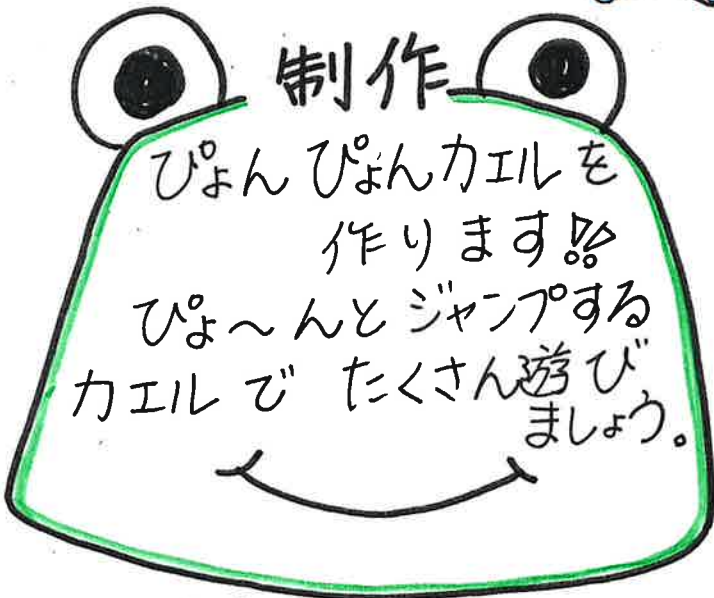 制作
ぴょんぴょんカエルを
作ります!!
ぴょ～んとジャンプする
カエルで たくさん遊び
ましょう。